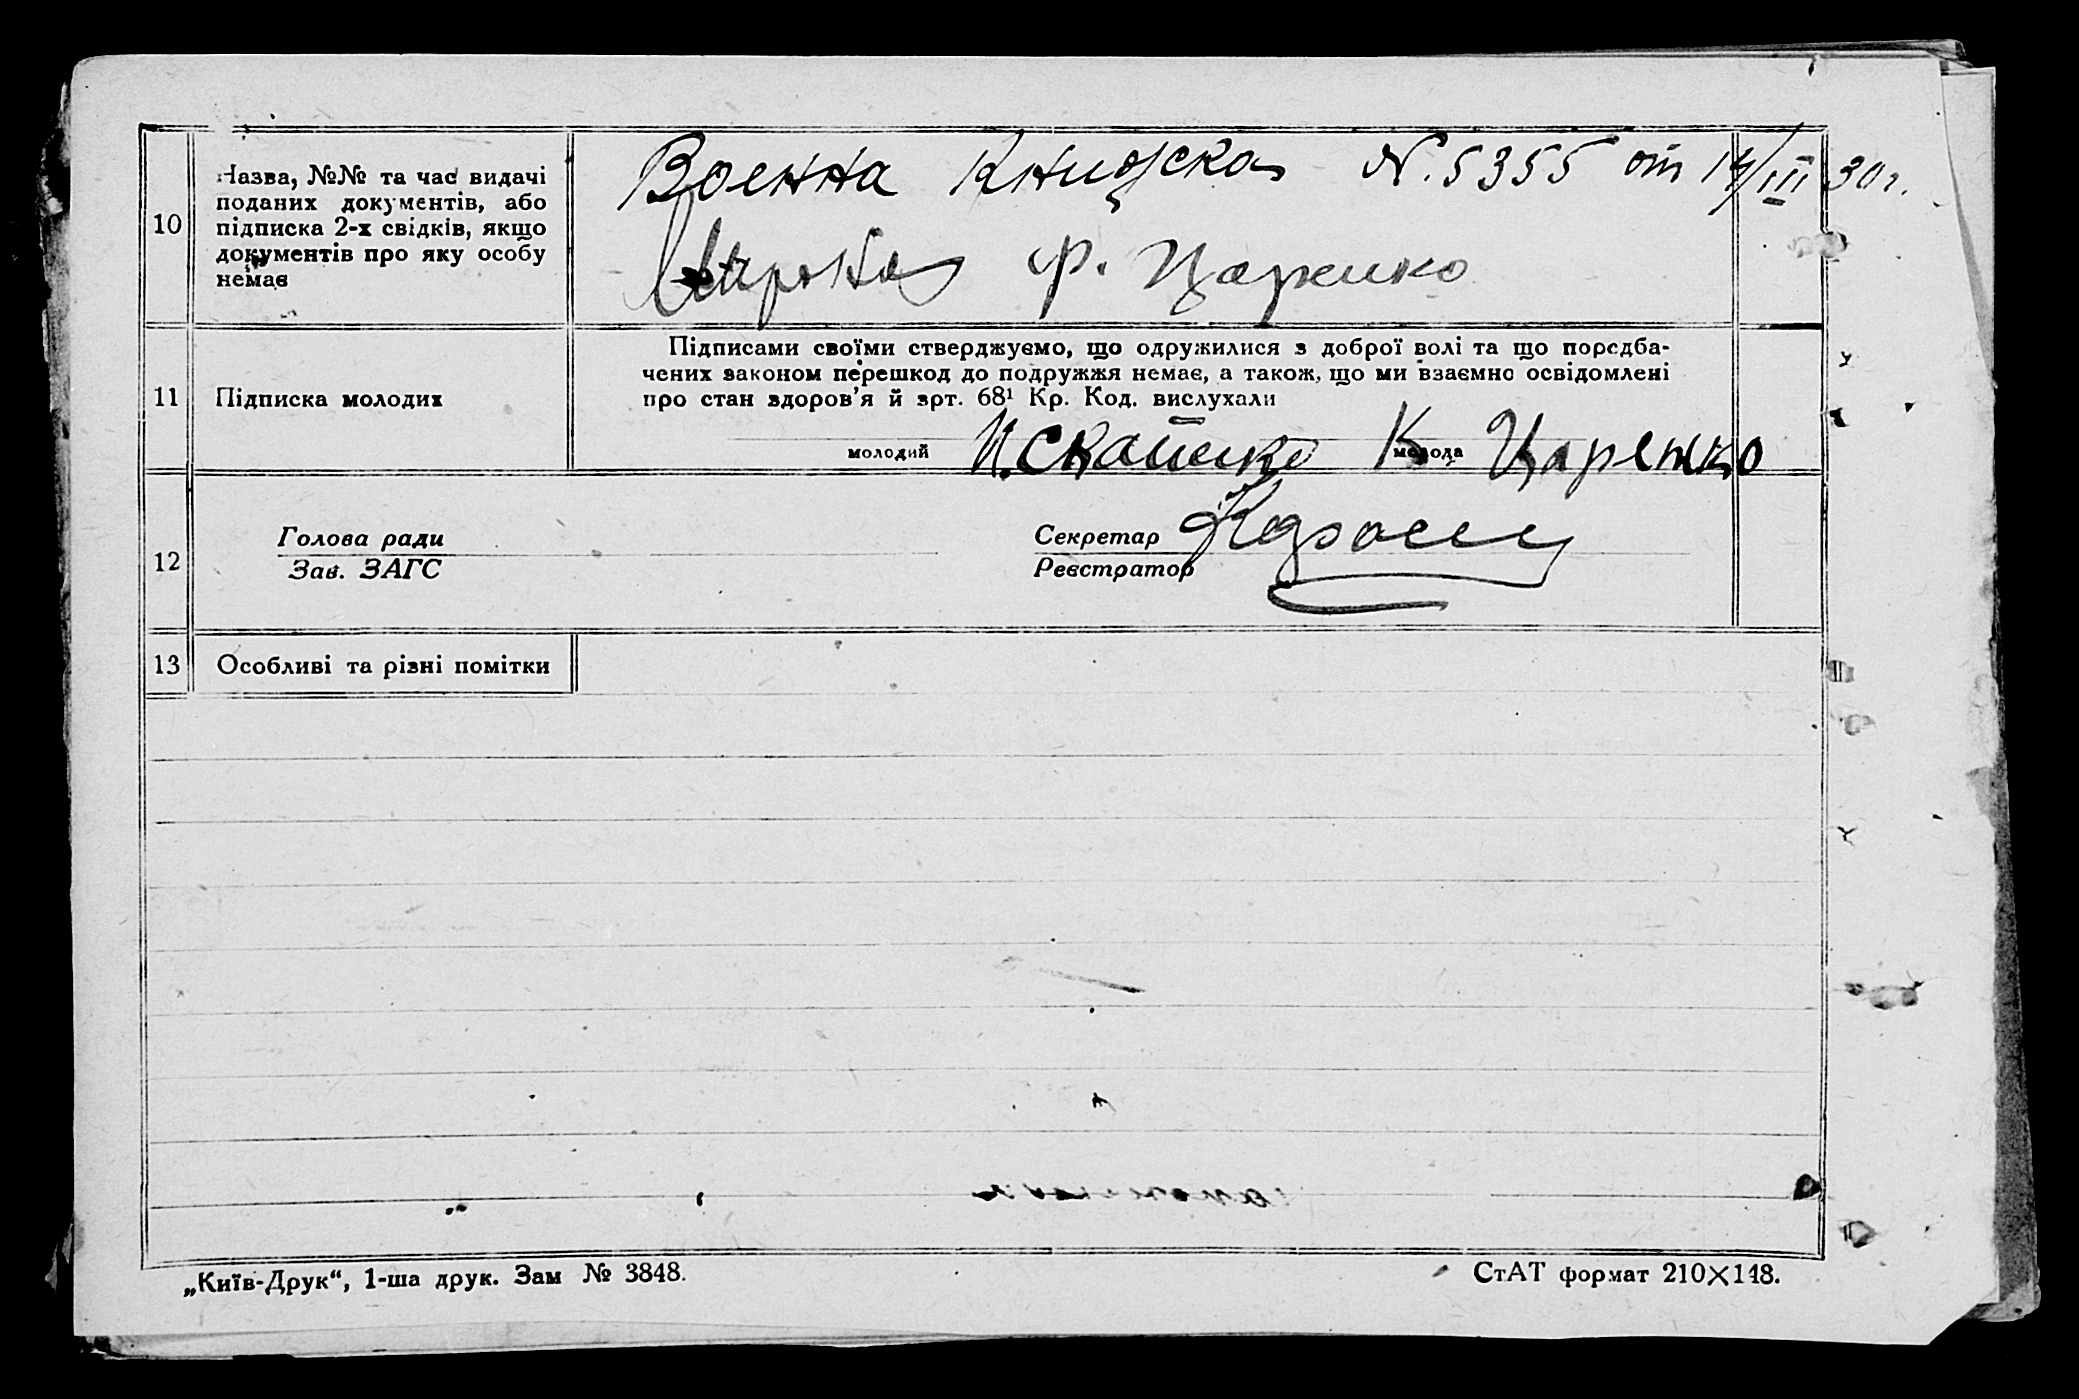 10
Назва, №№ та час видачі
поданих документів, або
підписка 2-х свідків, якщо
документів про яку особу
немає
Воєнна Книжска N. 5355 от 14/III 30 г.
Ф. Царенко
11
Підписка молодих
Підписами своїми стверджуємо, що одружилися з доброї волі та що передба-
чених законом перешкод до подружжя немає, а також, що ми взаємно освідомлені
про стан здоров'я й арт. 68¹ Кр. Код. вислухали
молодий
молода К Царенко
12
Голова ради
Зав. ЗАГС
Секретар
Реєстратор
13
Особливі та різні помітки
„Київ-Друк“, 1-ша друк. Зам № 3848.
СтАТ формат 210×148.